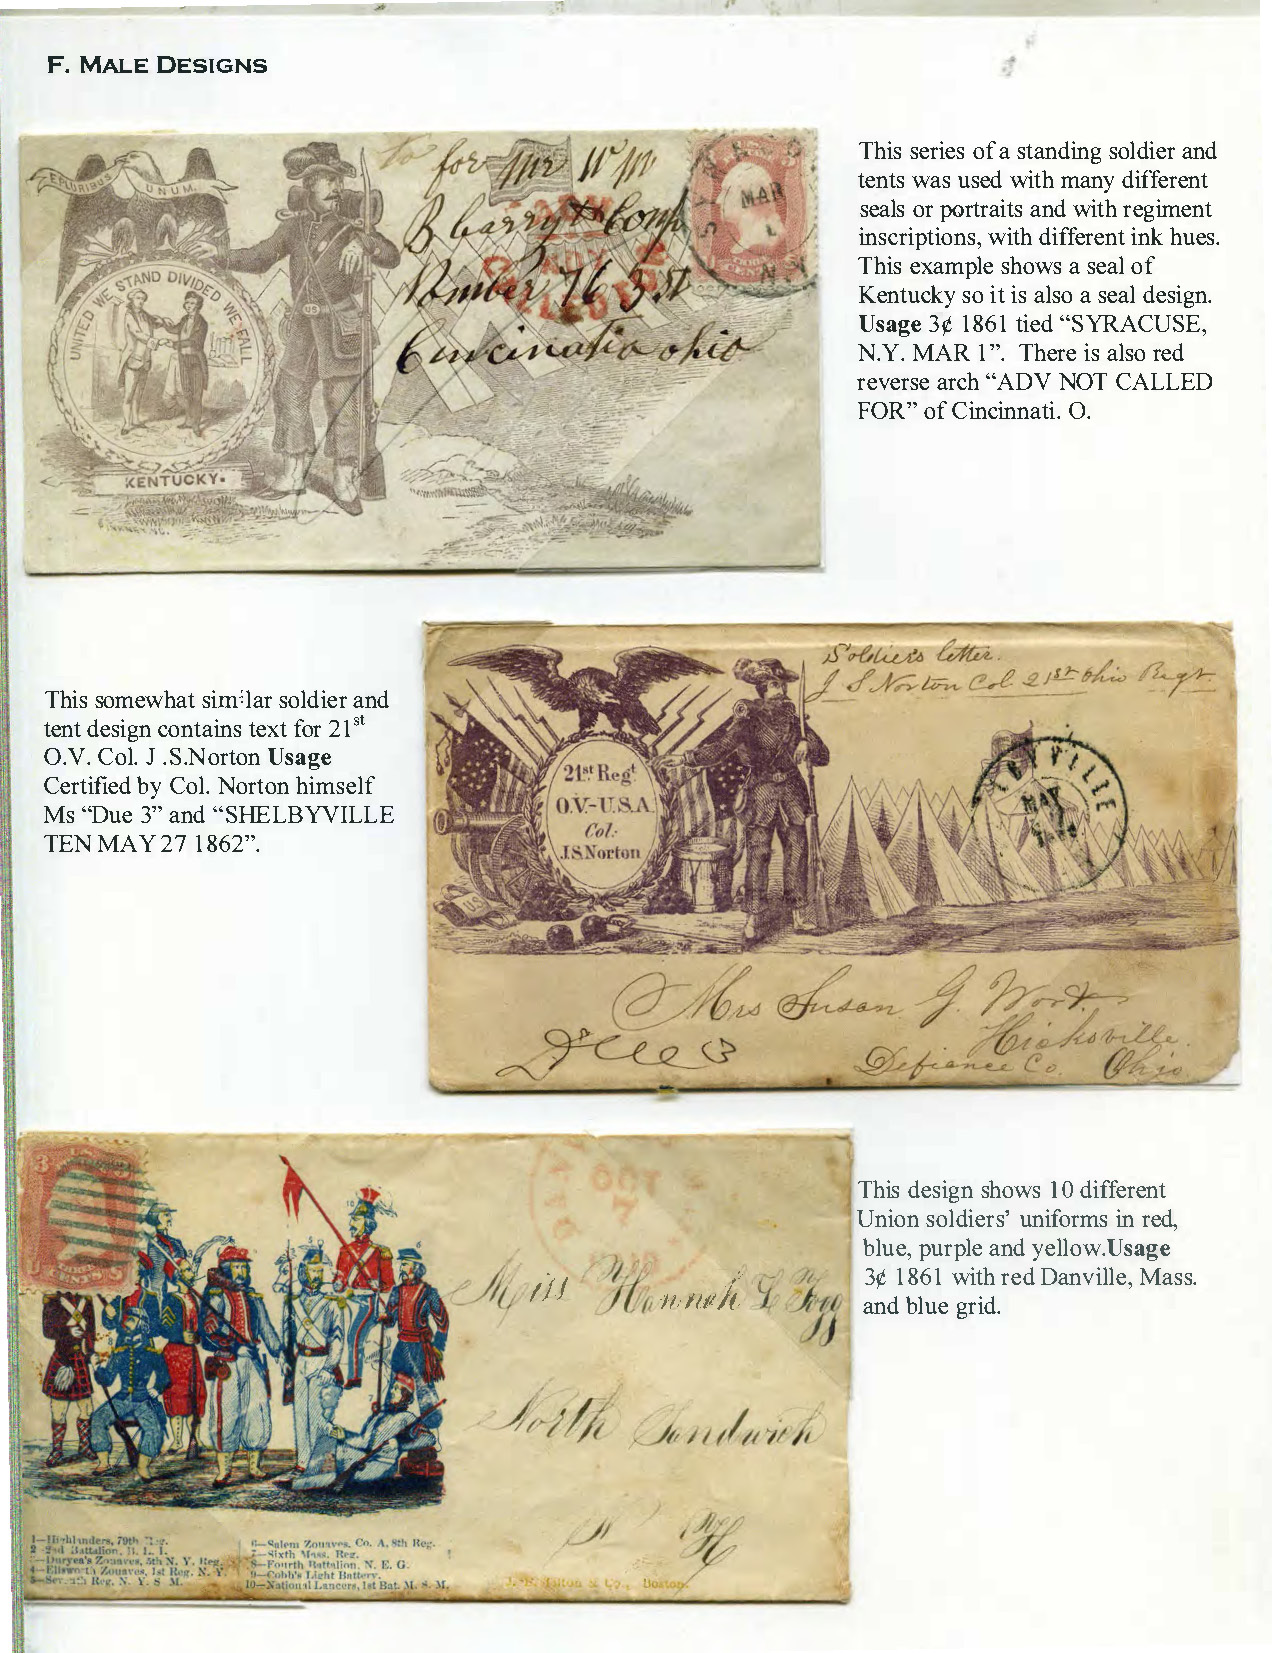 F. MALE DESIGNS
E PLURIBUS UNUM.
UNITED WE STAND DIVIDED WE FALL
KENTUCKY.
US
to for Mr Wm
B barry & Comp
Number 76 3 St
Cincinatia ohio
NOT
CALLED FOR
SYRACUSE
MAR
1
N.Y.
THREE
CENTS
This series of a standing soldier and
tents was used with many different
seals or portraits and with regiment
inscriptions, with different ink hues.
This example shows a seal of
Kentucky so it is also a seal design.
Usage 3¢ 1861 tied “SYRACUSE,
N.Y. MAR 1”. There is also red
reverse arch “ADV NOT CALLED
FOR” of Cincinnati. O.
This somewhat similar soldier and
tent design contains text for 21st
O.V. Col. J .S.Norton Usage
Certified by Col. Norton himself
Ms “Due 3” and “SHELBYVILLE
TEN MAY 27 1862”.
Soldier's letter.
J S Norton Col. 21st Ohio Regt.
21st Regt
O.V-U.S.A.
Col:-
J.S.Norton
US
BYVILLE
MAY
Mrs Susan G. Work.
Hicksville.
Due 3
Defiance Co. Ohio.
This design shows 10 different
Union soldiers’ uniforms in red,
blue, purple and yellow.Usage
3¢ 1861 with red Danville, Mass.
and blue grid.
3
CENTS
OCT
7
Miss Hannah L Fogg
North Sandwich
N H
1—Highlanders, 79th Reg.
2—2nd Battalion, R. I.
3—Duryea's Zouaves, 5th N. Y. Reg.
4—Ellsworth Zouaves, 1st Reg. N. Y.
5—Seventh Reg. N. Y. S. M.
6—Salem Zouaves, Co. A, 8th Reg.
7—Sixth Mass. Reg.
8—Fourth Battalion, N. E. G.
9—Cobb's Light Battery.
10—National Lancers, 1st Bat. M. S. M.
Boston.